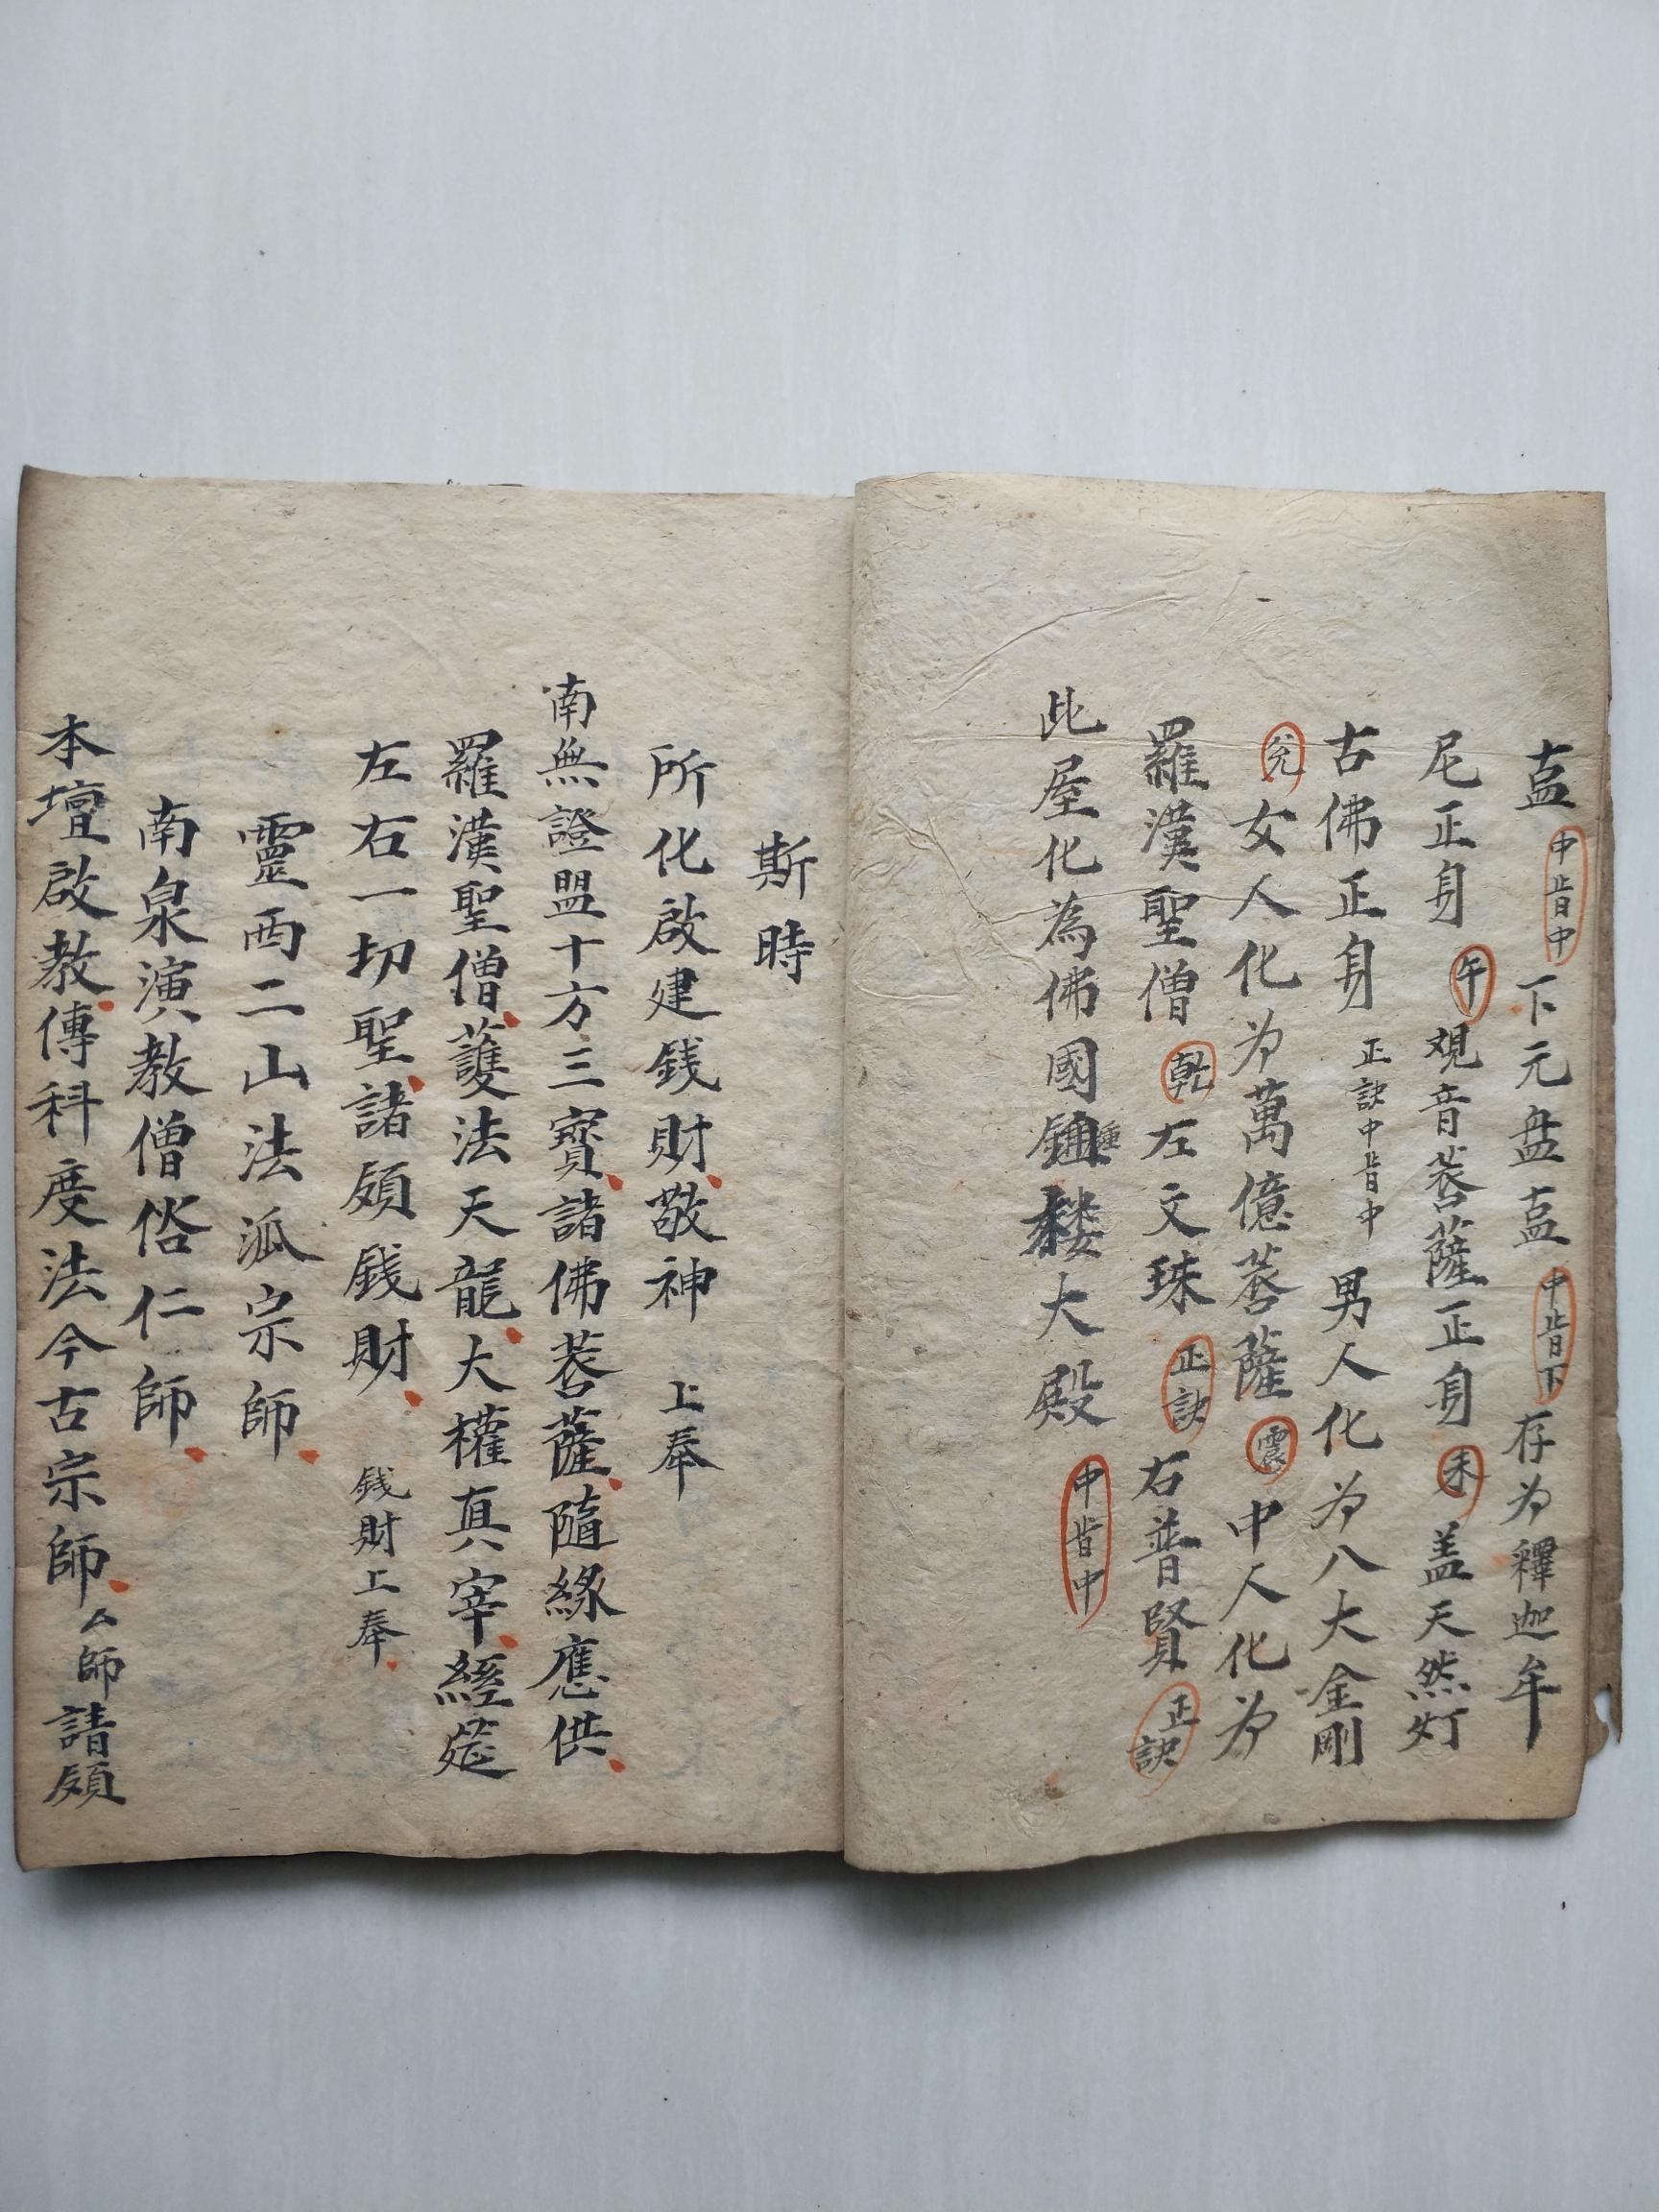 盍中指中下元盘盍中指下存为釋迦牟
尼正身午观音菩薩正身未盖天然灯
古佛正身正訣中指中男人化为八大金剛
兑女人化为萬億菩薩震中人化为
羅漢聖僧乾左文珠正訣右普賢正訣
此屋化為佛國鍾樓大殿中指中
斯時
所化啟建銭財敬神上奉
南無證盟十方三寳諸佛菩薩隨緣應供
羅漢聖僧護法天龍大權真宰經筵
左右一切聖諸領銭財銭財上奉
靈西二山法派宗師
南泉演教僧俗仁師
本壇啟教傳科度法今古宗師厶師請領